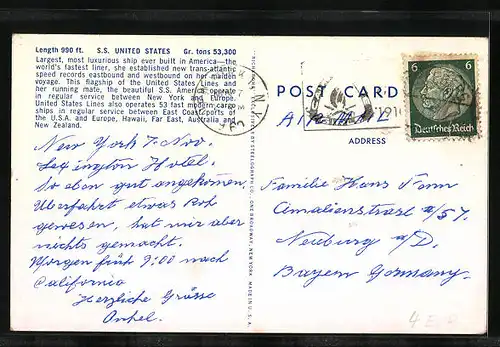 Length 990 ft. S.S. UNITED STATES Gr. tons 53,300
Largest, most luxurious ship ever built in America—the
world's fastest liner, she established new trans-atlantic
speed records eastbound and westbound on her maiden
voyage. This flagship of the United States Lines and
her running mate, the beautiful S.S. America operate
in regular service between New York and Europe.
United States Lines also operates 53 fast modern cargo
ships in regular service between East Coast ports of
the U.S.A. and Europe, Hawaii, Far East, Australia and
New Zealand.
New York 7. Nov.
Lexington Hotel.
So eben gut angekommen,
Überfahrt etwas roh
gewesen, hat mir aber
nichts gemacht.
Morgen früh 9:00 nach
California
Herzliche Grüsse
Onkel.
N.Y.
POST CARD
AIR MAIL
ADDRESS
6 6
Deutsches Reich
Familie Hans
Amalienstrasse
Neuburg a/D.
Bayern Germany.
MADE IN U.S.A.